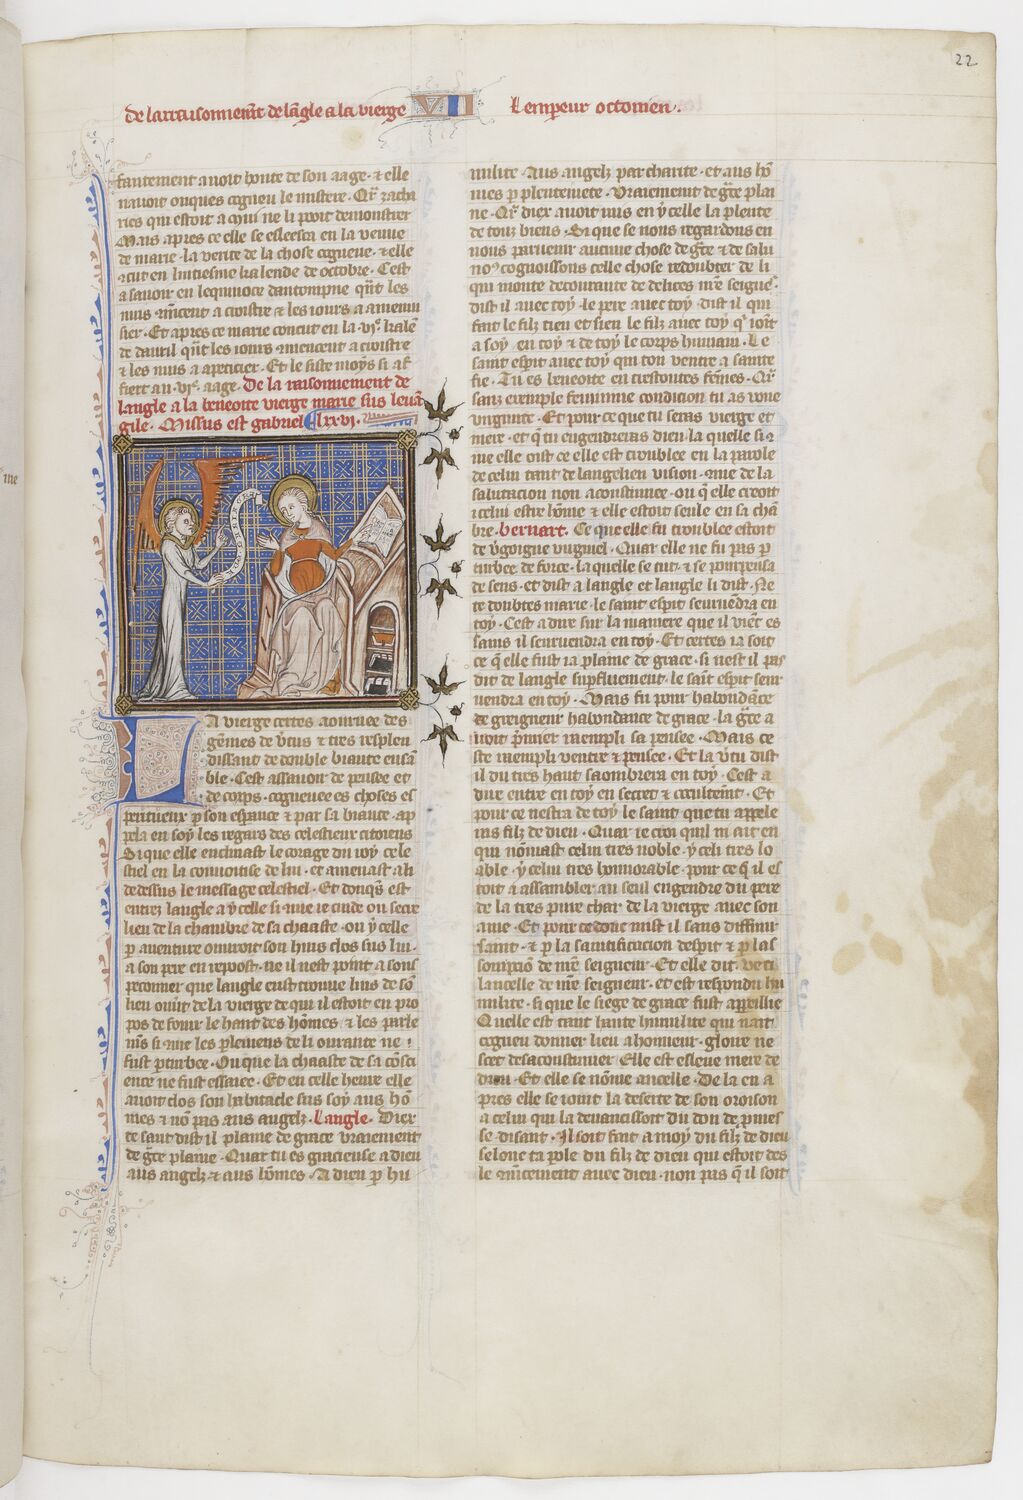 22
de larraisonnemēt de lāgle a la vierge VII Lempeur octouien.
fantement auoit honte de son aage. ⁊ elle
nauoit onques cogneu le mistere. Qr̄ zacha
ries qui estoit a
Mais apres ce elle se esleesca en la venue
de marie. la verite de la chose cogneue. ⁊ elle
en luitiesme kalende de octobre. Cest
a sauoir en lequinoce dantompne qūt les
nuis a croistre ⁊ les iours a amenui
sier. Et apres ce marie conceut en la vi͛ kalēde
de dauril qūt les iours a croistre
⁊ les nuis a apeticier. Et le siste moys si af
fiert au .vi͛. aage. De la raisonnement de
langle a la beneoite vierge marie sus leuā
gile. Missus est gabriel lxxvi.
A vierge certes aournee des
gēmes de v̄tus ⁊ tres resplen
dissant de double biaute ensā
ble. Cest assauoir de pensee et
de corps. cogneue es choses es
ꝑ son espance ⁊ par sa biaute. ap
pela en soy les regars des celestieux citoiens
Si que elle enclinast le corage du roy cele
stiel en la conuoitise de lui. et amenast a li
de dessus le message celestiel. Et donqs̄ est
entrez langle a ycelle si que ie cuide ou secre
lieu de la chambre de sa chaaste. ou ycelle
ꝑ auenture ouuroit son huis clos sus lui.
a son pere en repost. ne il nest point a sous
peconner que langle eust trouue luis de sō
lieu ouūt de la vierge de qui il estoit en pro
pos de fouir le hant des hōmes ⁊ les parle
mēs si que les de li ourante ne
fust ꝑturbee. Ou que la chaaste de sa cōsci
ence ne fust essaiee. Et en celle heure elle
auoit clos son habitacle sus soy aus hō
mes ⁊ nō pas aus angelz. Langle. Diex
te saut dist il plaine de grace vraiement
de gr̄ce plaine. Quar tu es gracieuse a dieu
aus angelz ⁊ aus hōmes. A dieu ꝑ hu
milite. Aus angelz par charite. et aus hō
mes ꝑ plenteiuete. Vraiement de gr̄ce plai
ne. Qr̄ diex auoit mis en ycelle la plente
de touz biens. Si que se nous regardons en
nous paruenir aucune chose de gr̄ce ⁊ de salu
no⁹ cognoissons celle chose redonder de li
qui monte decourante de delices nr̄e seign͛.
dist il auec toy. le pere auec toy. dist il qui
fait le filz tien et sien le filz auec toy q̄ ioīt
a soy en toy ⁊ de toy le corps humain. Le
saint espit auec toy qui ton ventre a sainte
fie. Tu es beneoite en trestoutes fēmes. Qr̄
sanz exemple feminine condicion tu as ioie
virginite. Et pour ce que tu seras vierge et
mere. et q̄ tu engendreras dieu. la quelle si q̄
me elle oist ce elle est troublee en la parole
de celui tant de langelien vision. que de la
salutacion non acoustumee. ou q̄ elle creoit
icelui estre hōme ⁊ elle estoit seule en sa chā
bre. Bernart. Ce que elle fu troublee estoit
de v̄goigne virginel. Quar elle ne fu pas ꝑ
turbee de force. la quelle se tut. ⁊ se pourpensa
de sens. et dist a langle et langle li dist. Ne
te doubtes marie. le saint espit seurvēdra en
toy. Cest a dire sur la maniere que il viēt es
sains il seuruendra en toy. Et certes ia soit
ce q̄ elle fust ia plaine de grace. si nest il pas
dit de langle supfluement. le saīt espit seur
uendra en toy. Mais fu pour habondāce
de greigneur habondance de grace. la gr̄ce a
uoit p̄mier raempli sa pensee. Mais ce
ste raempli ventre ⁊ pensee. Et la v̄tu dist
il du tres haut saombrera en toy. Cest a
dire entre en toy en secret ⁊ occultemt̄. Et
pour ce nestra de toy le saint que tu appele
ras filz de dieu. Quar ie croi quil m ait en
qui nōmast celui tres noble. ycelui tres lo
able. ycelui tres honnorable. pour ce q̄ il es
toit a assambler au seul engendre du pere
de la tres pure char de la vierge auec son
ame. Et pour ce donc mist il sans diffinir
saint. ⁊ ꝑ la saintificacion despit ⁊ ꝑ las
sompciō de nr̄e seigneur. Et elle dit. veci
lancelle de nr̄e seigneur. et est respondu hu
milite. si que le siege de grace fust appeillie
Quelle est tant haute humilite qui nait
cogneu donner lieu a honneur. gloire ne
scet desacoustumer. Elle est esleue mere de
dieu. Et elle se nōme ancelle. De la en a
pres elle se ioint la deserte de son oroison
a celui qui la deuancissoit du don de pmes
se disant. Il soit fait a moy du filz de dieu
selonc ta pole du filz de dieu qui estoit des
le auec dieu. non pas q̄ il soit